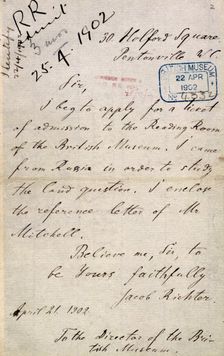 RR
Admit
3 mos
25.4.1902
30 Holford Square
Pentonville W.C.
BRITISH MUSEUM
22 APR
1902
Sir,
I beg to apply for a ticket
of admission to the Reading Room
of the British Museum. I came
from Russia in order to study
the land question. I enclose
the reference letter of Mr
Mitchell.
Believe me, Sir, to
be Yours faithfully
Jacob Richter
April 21 1902.
To the Director of the Bri-
tish Museum.